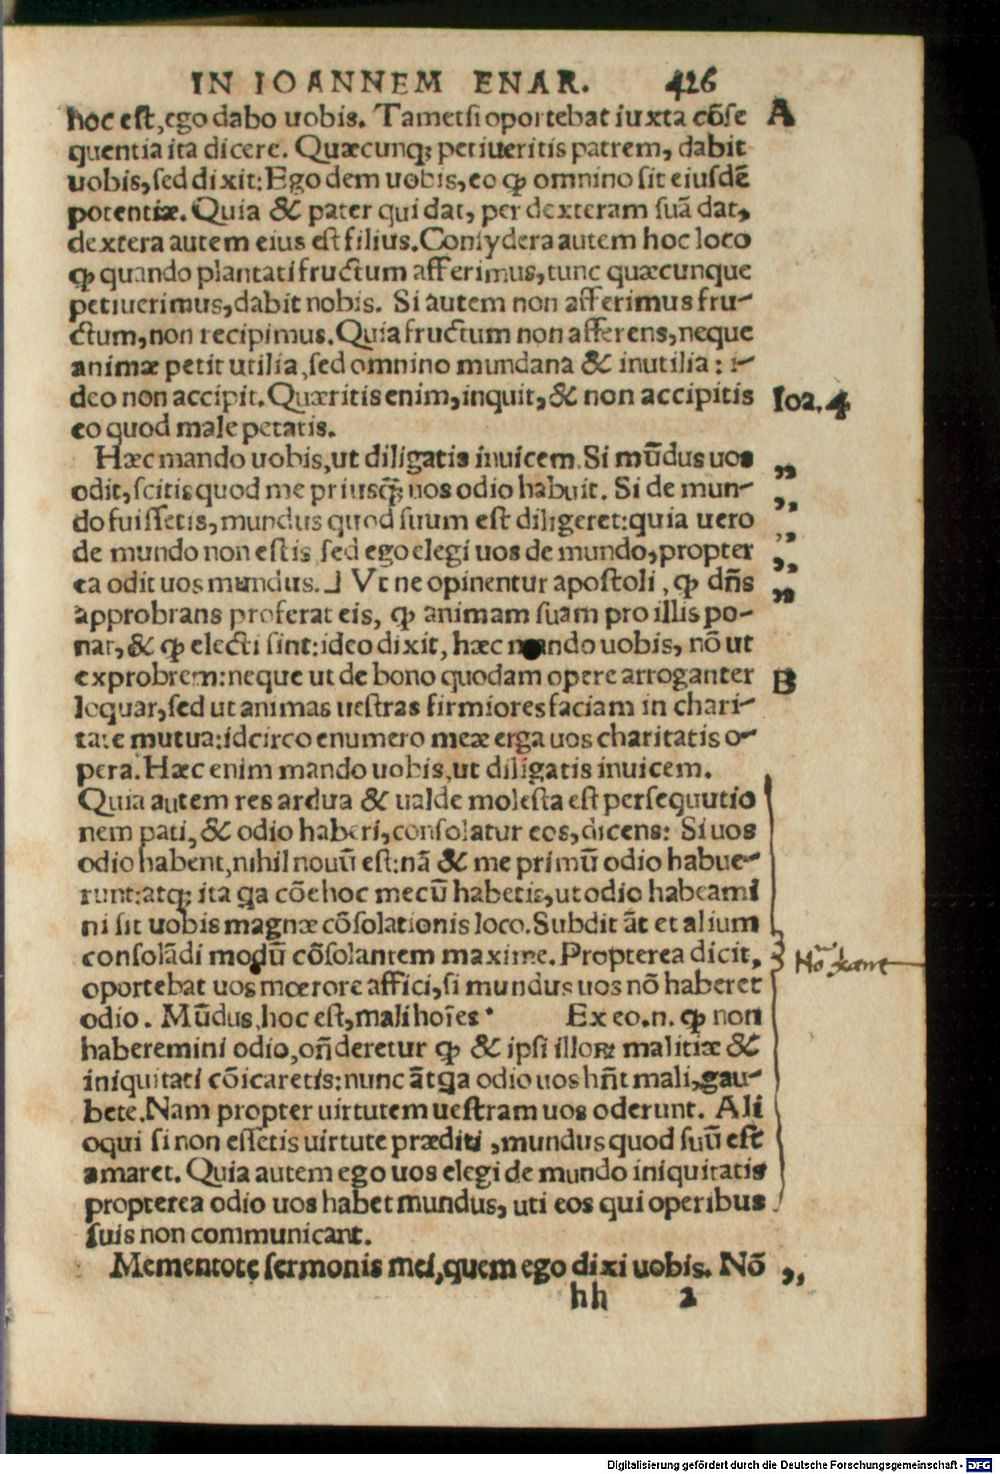 IN IOANNEM ENAR. 426
hoc est, ego dabo uobis. Tametsi oportebat iuxta cōse A
quentia ita dicere. Quæcunq; petiueritis patrem, dabit
uobis, sed dixit: Ego dem uobis, eo ꝙ omnino sit eiusdē
potentiæ. Quia & pater qui dat, per dexteram suā dat,
dextera autem eius est filius. Consydera autem hoc loco
ꝙ quando plantati fructum afferimus, tunc quæcunque
petiuerimus, dabit nobis. Si autem non afferimus fru-
ctum, non recipimus. Quia fructum non afferens, neque
animæ petit utilia, sed omnino mundana & inutilia: i-
deo non accipit. Quæritis enim, inquit, & non accipitis Ioa. 4
eo quod male petatis.
Hæc mando uobis, ut diligatis inuicem. Si mūdus uos „
odit, scitis quod me priusq̄; uos odio habuit. Si de mun- „
do fuissetis, mundus quod suum est diligeret: quia uero „
de mundo non estis sed ego elegi uos de mundo, propter „
ea odit uos mundus. ┘ Vt ne opinentur apostoli, ꝙ dn̄s „
approbrans proferat eis, ꝙ animam suam pro illis po-
nat, & ꝙ electi sint: ideo dixit, hæc mando uobis, nō ut
exprobrem: neque ut de bono quodam opere arroganter B
loquar, sed ut animas uestras firmiores faciam in chari-
tate mutua: idcirco enumero meæ erga uos charitatis o-
pera. Hæc enim mando uobis, ut diligatis inuicem.
Quia autem res ardua & ualde molesta est persequutio
nem pati, & odio haberi, consolatur eos, dicens: Si uos
odio habent, nihil nouū est: nā & me primū odio habue-
runt: atq; ita ꝗa cōe hoc mecū habetis, ut odio habeami
ni sit uobis magnæ cōsolationis loco. Subdit āt et alium
consolādi modū cōsolantem maxime. Propterea dicit,
oportebat uos mœrore affici, si mundus uos nō haberet
odio. Mūdus, hoc est, mali hoīes. Ex eo.n. ꝙ non
haberemini odio, on̄deretur ꝙ & ipsi illoꝝ malitiæ &
iniquitati cōicaretis: nunc āt ꝗa odio uos hn̄t mali, gau-
bete. Nam propter uirtutem uestram uos oderunt. Ali
oqui si non essetis uirtute præditi, mundus quod suū est
amaret. Quia autem ego uos elegi de mundo iniquitatis
propterea odio uos habet mundus, uti eos qui operibus
suis non communicant.
Mementote sermonis mei, quem ego dixi uobis. Nō „
hh 2
Digitalisierung gefördert durch die Deutsche Forschungsgemeinschaft - DFG